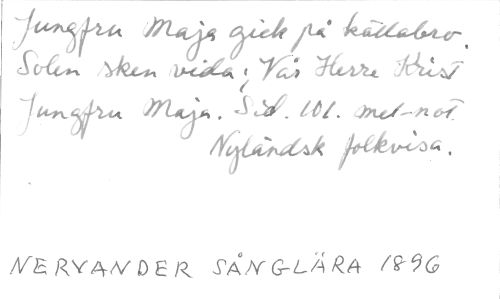 Jungfru Maja gick på källabro.
Solen sken vida; Vår Herre Krist
Jungfru Maja. Sid. 101. mel-not.
Nyländsk folkvisa.
NERVANDER SÅNGLÄRA 1896